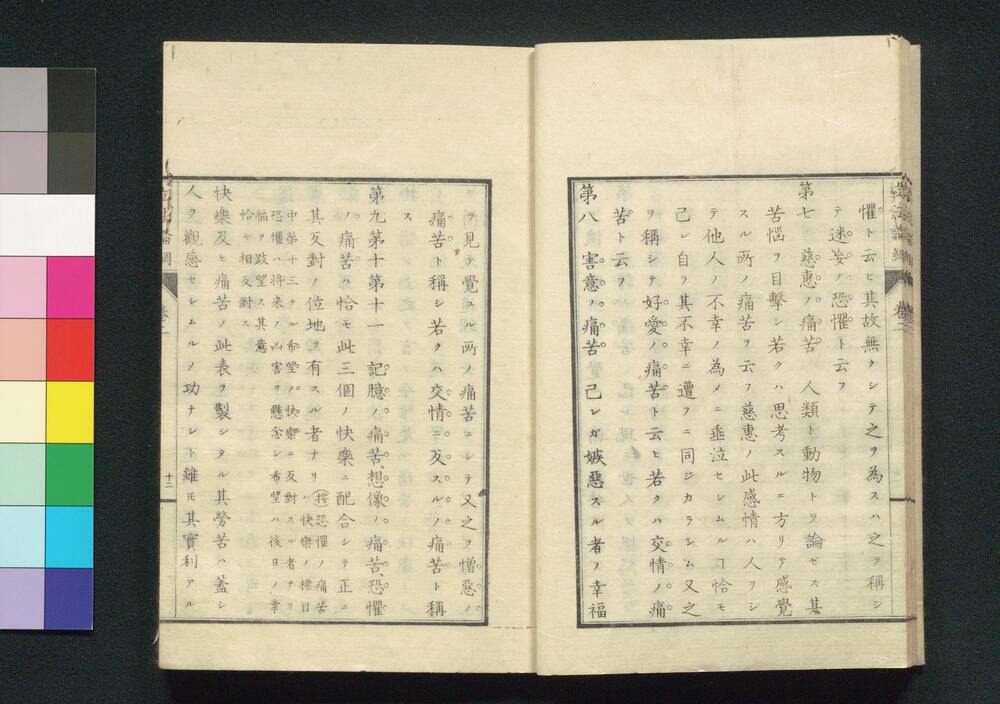 懼ト云ヒ其故無クシテ之ヲ為スハ之ヲ稱シ
テ迷妄ノ恐懼ト云フ
第七 慈惠ノ痛苦 人類ト動物トヲ論セス其
苦惱ヲ目擊シ若クハ思考スルニ方リテ感覺
スル所ノ痛苦ヲ云フ慈惠ノ此感情ハ人ヲシ
テ他人ノ不幸ノ為メニ垂泣セシムルヿ恰モ
己レ自ラ其不幸ニ遭フニ同ジカラシム又之
ヲ稱シテ好愛ノ痛苦ト云ヒ若クハ交情ノ痛
苦ト云フ
第八 害意ノ痛苦 己レガ嫉惡スル者ノ幸福
ヲ見テ覺ユル所ノ痛苦ニシテ又之ヲ憎惡ノ
痛苦ト稱シ若クハ交情ニ反スルノ痛苦ト稱
ス
第九第十第十一 記臆ノ痛苦、想像ノ痛苦、恐懼
ノ痛苦ハ恰モ此三個ノ快樂ニ配合シテ正ニ
其反對ノ位地ヲ有スル者ナリ
按恐懼ノ痛苦
ハ快樂ノ標目
中第十三ナル希望ノ快樂ニ反對スル者ナリ
恐懼ハ将来ノ凶害ヲ懸念シ希望ハ後日ノ幸
福ヲ跂望ス其意
恰モ相反對ス
快樂及ヒ痛苦ノ此表ヲ製シタル其勞苦ハ蓋シ
人ヲ觀感セシムルノ功ナシト雖モ其實利アル
卷二
十二